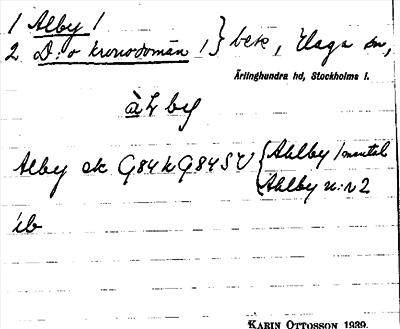 1 Alby /
2 D:o kronodomän / } bek, Haga sn,
Ärlinghundra hd, Stockholms l.
à L by
Alby ek G84k G84SV { Ahlby / mantal
Ahlby n:r 2
ib
KARIN OTTOSSON 1939.